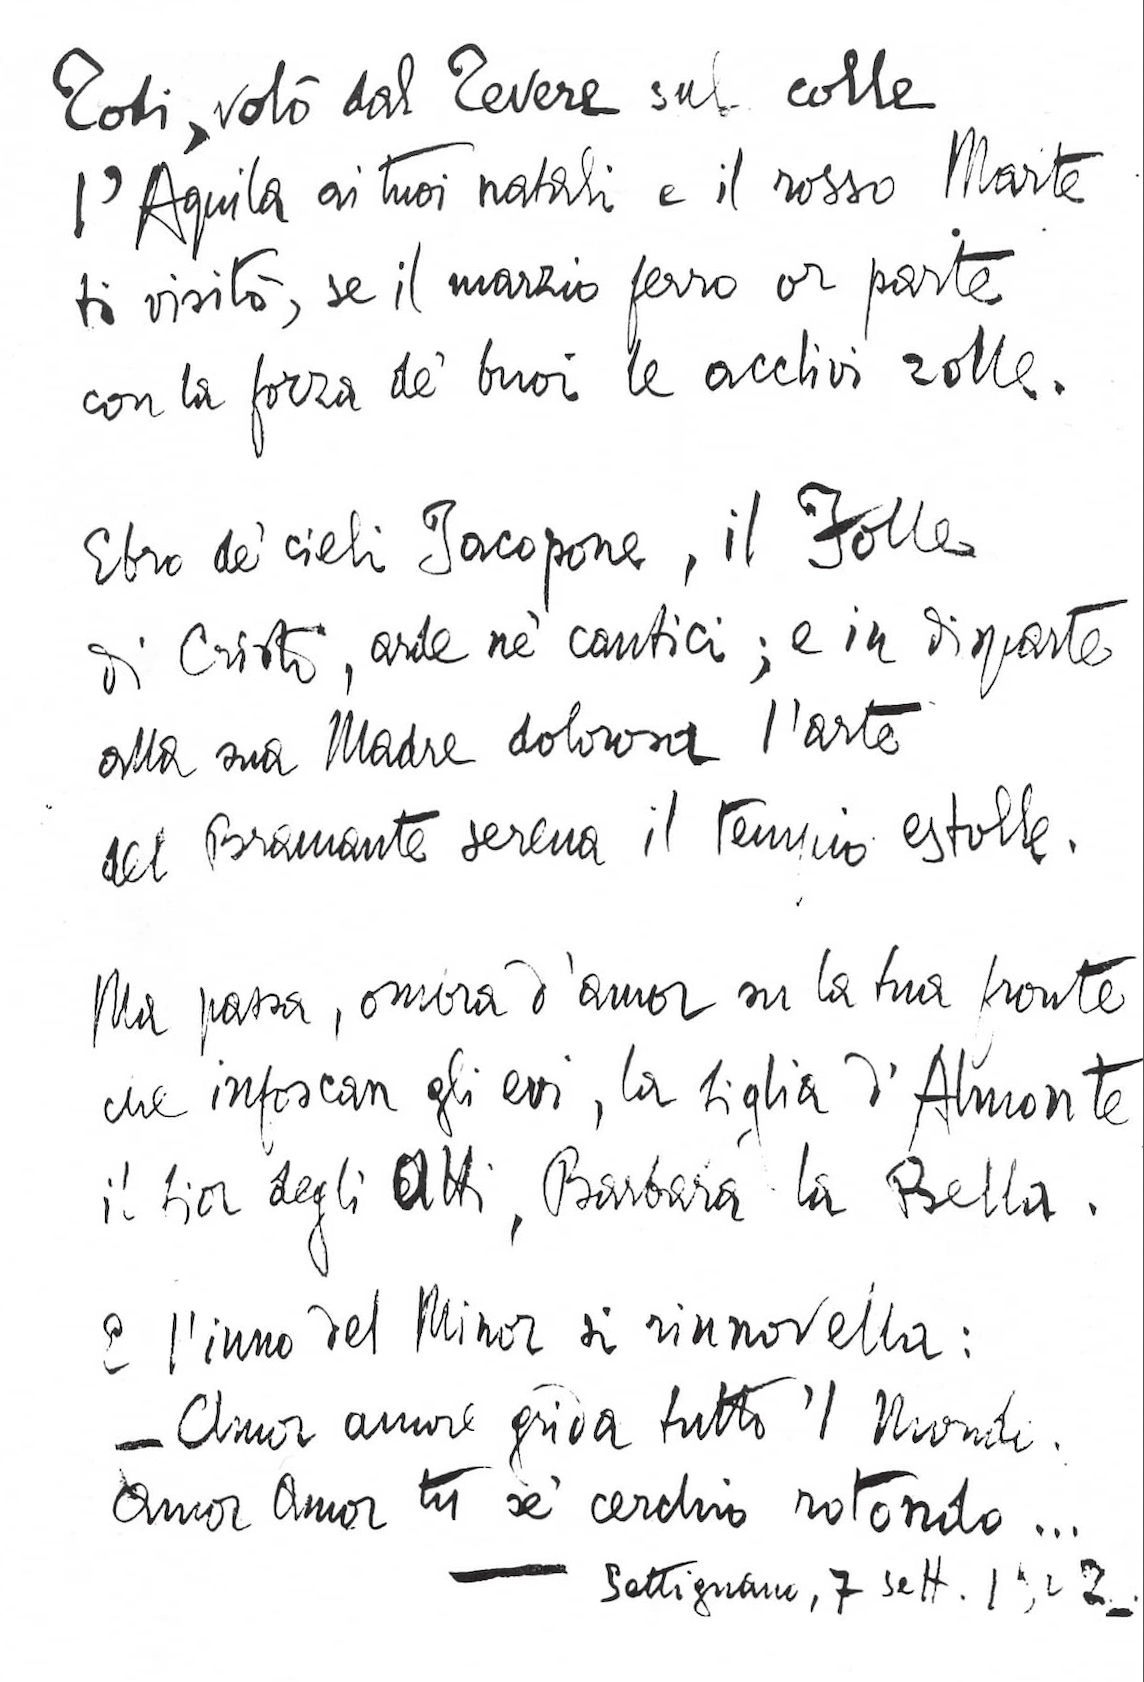 Todi, volò dal Tevere sul colle
l'Aquila ai tuoi natali e il rosso Marte
ti visitò, se il marzio ferro or parte
con la forza de' buoi le acclivi zolle.
Ebro de' cieli Jacopone, il Folle
di Cristo, arde ne' cantici; e in disparte
alla sua Madre dolorosa l'arte
del Bramante serena il tempio estolle.
Ma passa, ombra d'amor su la tua fronte
che infoscan gli evi, la figlia d'Almonte
il fior degli Atti, Barbara la Bella.
E l'inno del Minor si rinnovella:
— Amor amore grida tutto 'l Mondo.
Amor Amor tu se' cerchio rotondo...
— Settignano, 7 sett.